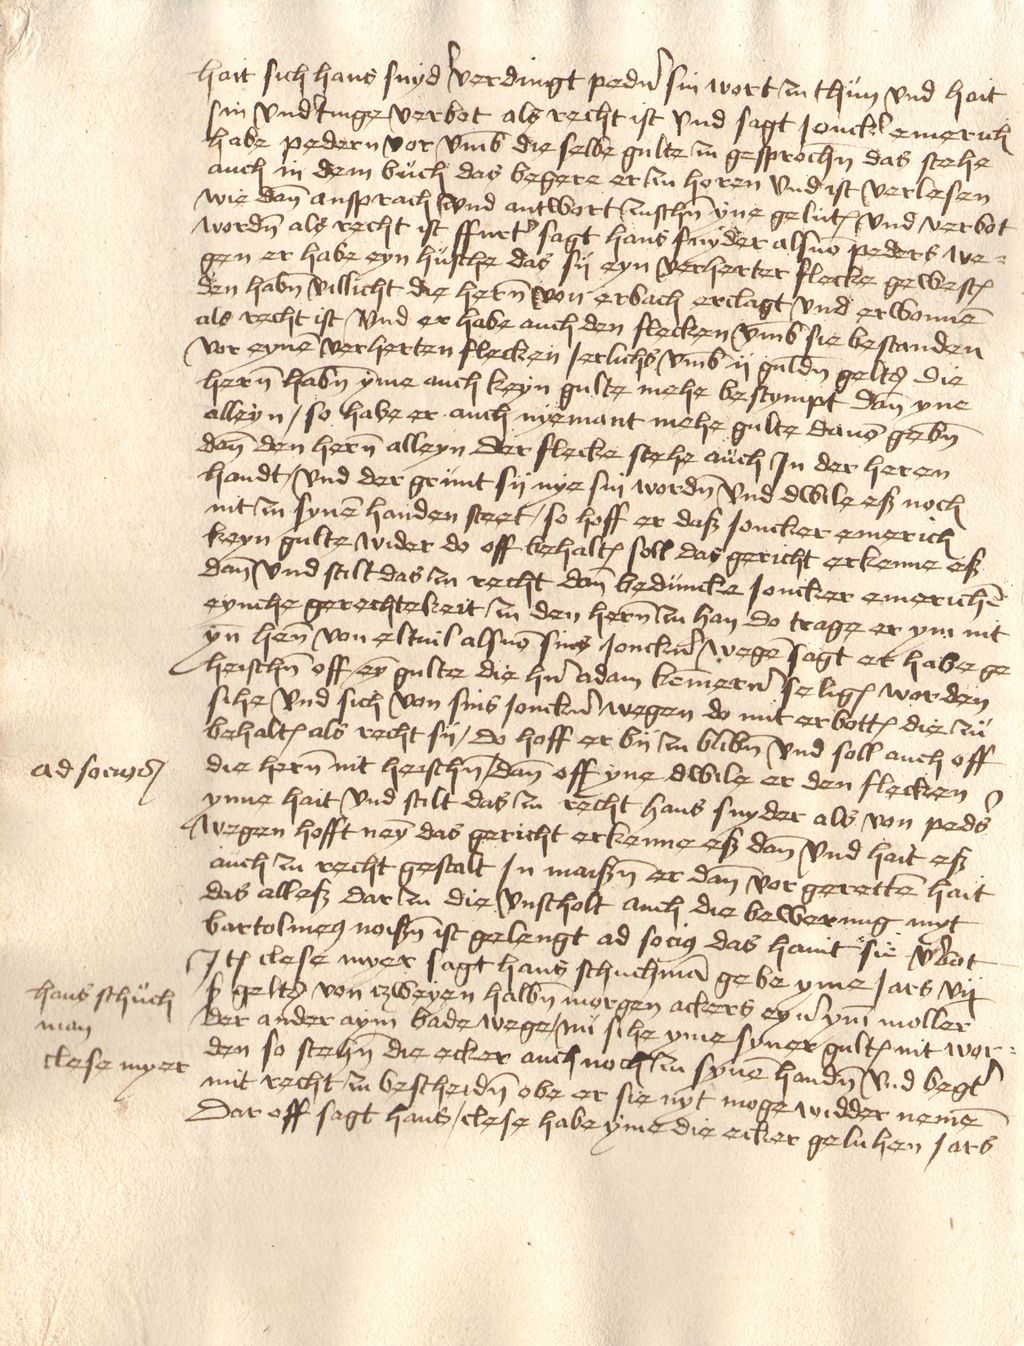 hait sich hans snyd' verdingt ped'n sin wort zu thun vnd hait
sin vnd'tinge verbot als recht ist vnd sagt Jonck' emerich
habe pedern vor vmb die selbe gulte zu gesprochn das stehe
auch in dem buch das begere er zu horen vnd ist verlesen
wie dan ansprach vnd antwort zuschn yne gelut vnd verbot
wordn als recht ist ffurt' sagt hans snyder also peders we=
gen er habe eyn husche das sij eyn verherter flecke gewest
den habn villicht die hern von erbach erclagt vnd erwonne
als recht ist vnd er habe auch den flecken vmb sie bestanden
vor eyne verherten flecken Jerlichs vmb ij guldn gelts die
hern habn yme auch keyn gulte mehe bestympt dan yne
alleyn / so habe er auch nyemant mehe gulte dauo gebn
dan den hern alleyn der flecke stehe auch In der heren
handt / vnd der grunt sij nye sin wordn vnd dwile eß noch
nit in syne handen steet / so hoff er daß Joncker emerich
keyn gulte wider do off behalt soll das gericht erkenne eß
dan vnd stilt das zu recht dan beduncke Joncker emeriche
eynche gerechtekeit zu den hern zu han do trage er ym nit
yn hen von eltuil also sins Jonck'n wegen sagt er habe ge
heischn off ey gulte die h'n adam kemer'n selig worden
sihe vnd sich von sins Jonck'n wegen do mit erbott die zu
behalt als recht sij / do hoff er by zu blibn vnd soll auch off
ad socios
die hern nit heischn / dan off yne dwile er den flecken
ynne hait vnd stilt das zu recht hans snyder als von peds
wegen hofft ney das gericht erkenne eß dan vnd hait eß
auch zu recht gestalt In maißn er dan vor gerette hait
das alleß dar zu die vnscholt auch die bewerung myt
bartolmeus noißn ist gelengt ad socios das hant sie v'bot
It clese myer sagt hans schuchma gebe yme Jars vij
hans schuch
man
ß gelts von tzweyen halbn morgen ackers eyn' ym moller
der ander aym bade wege / nu sihe yme syner gult nit wor=
clese myer
den so stehn die ecker auch noch zu syne handn vnd begt'
mit recht zu bescheidn obe er sie nyt moge widder neme
Dar off sagt hans / clese habe yme die ecker geluhen Jars